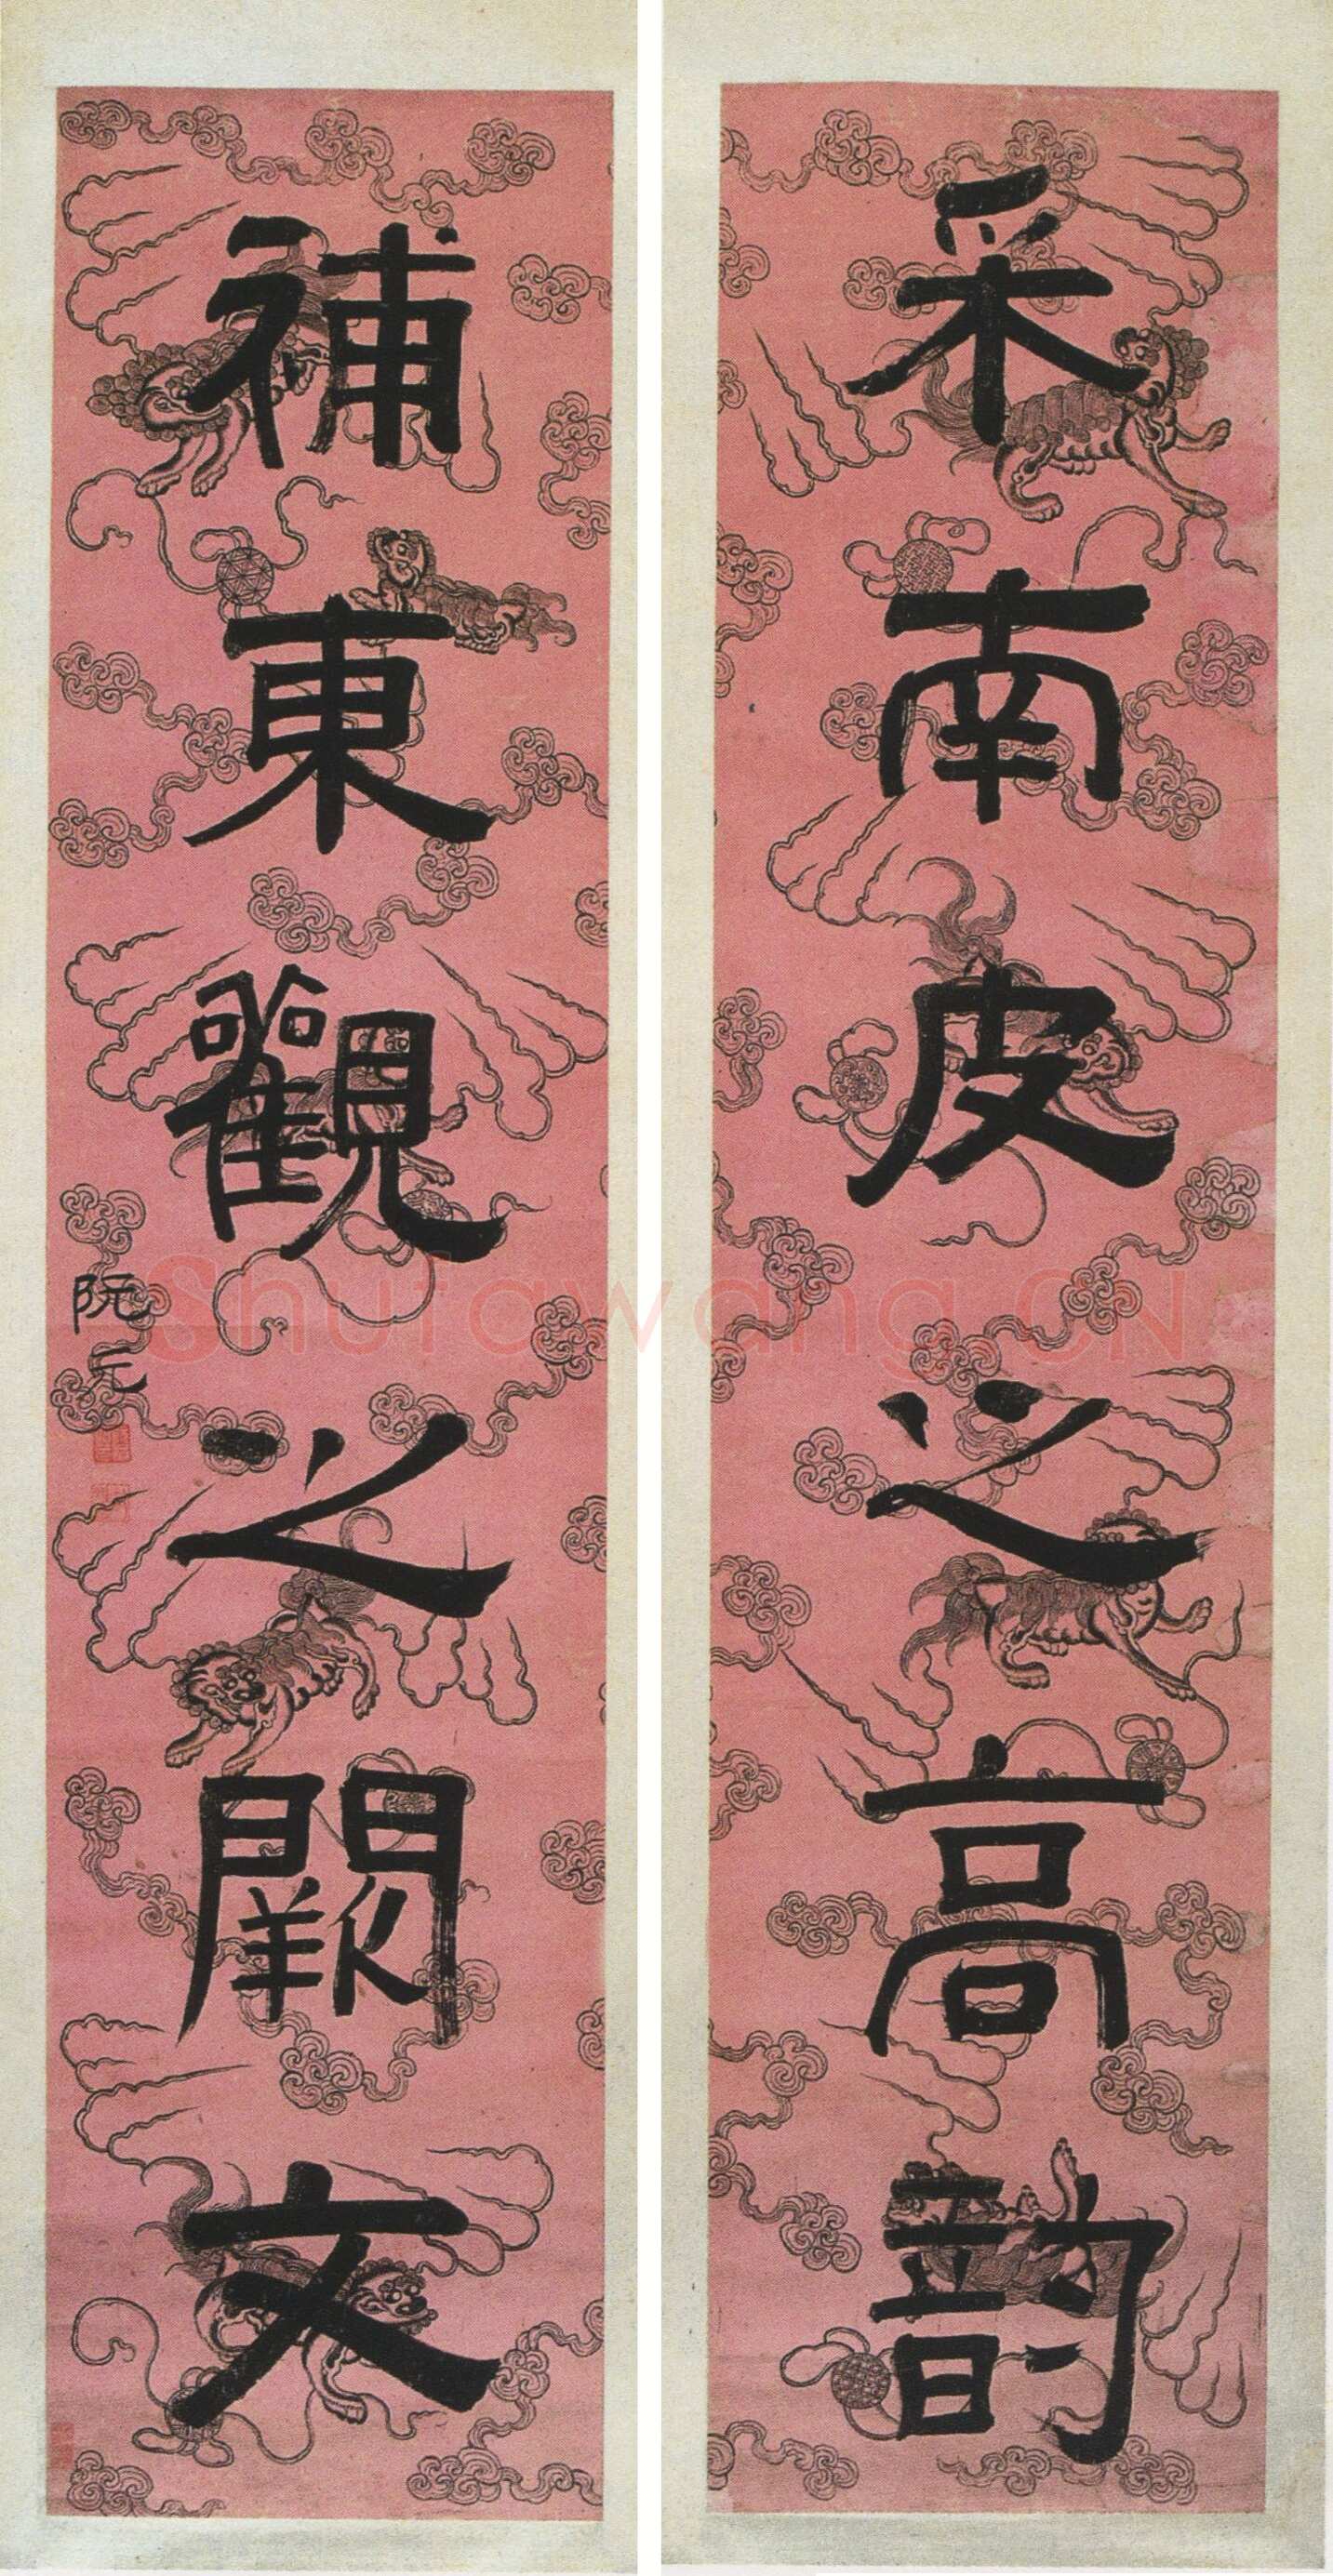 采南皮之高韵
補東觀之闕文
阮元
Shufawang.CN